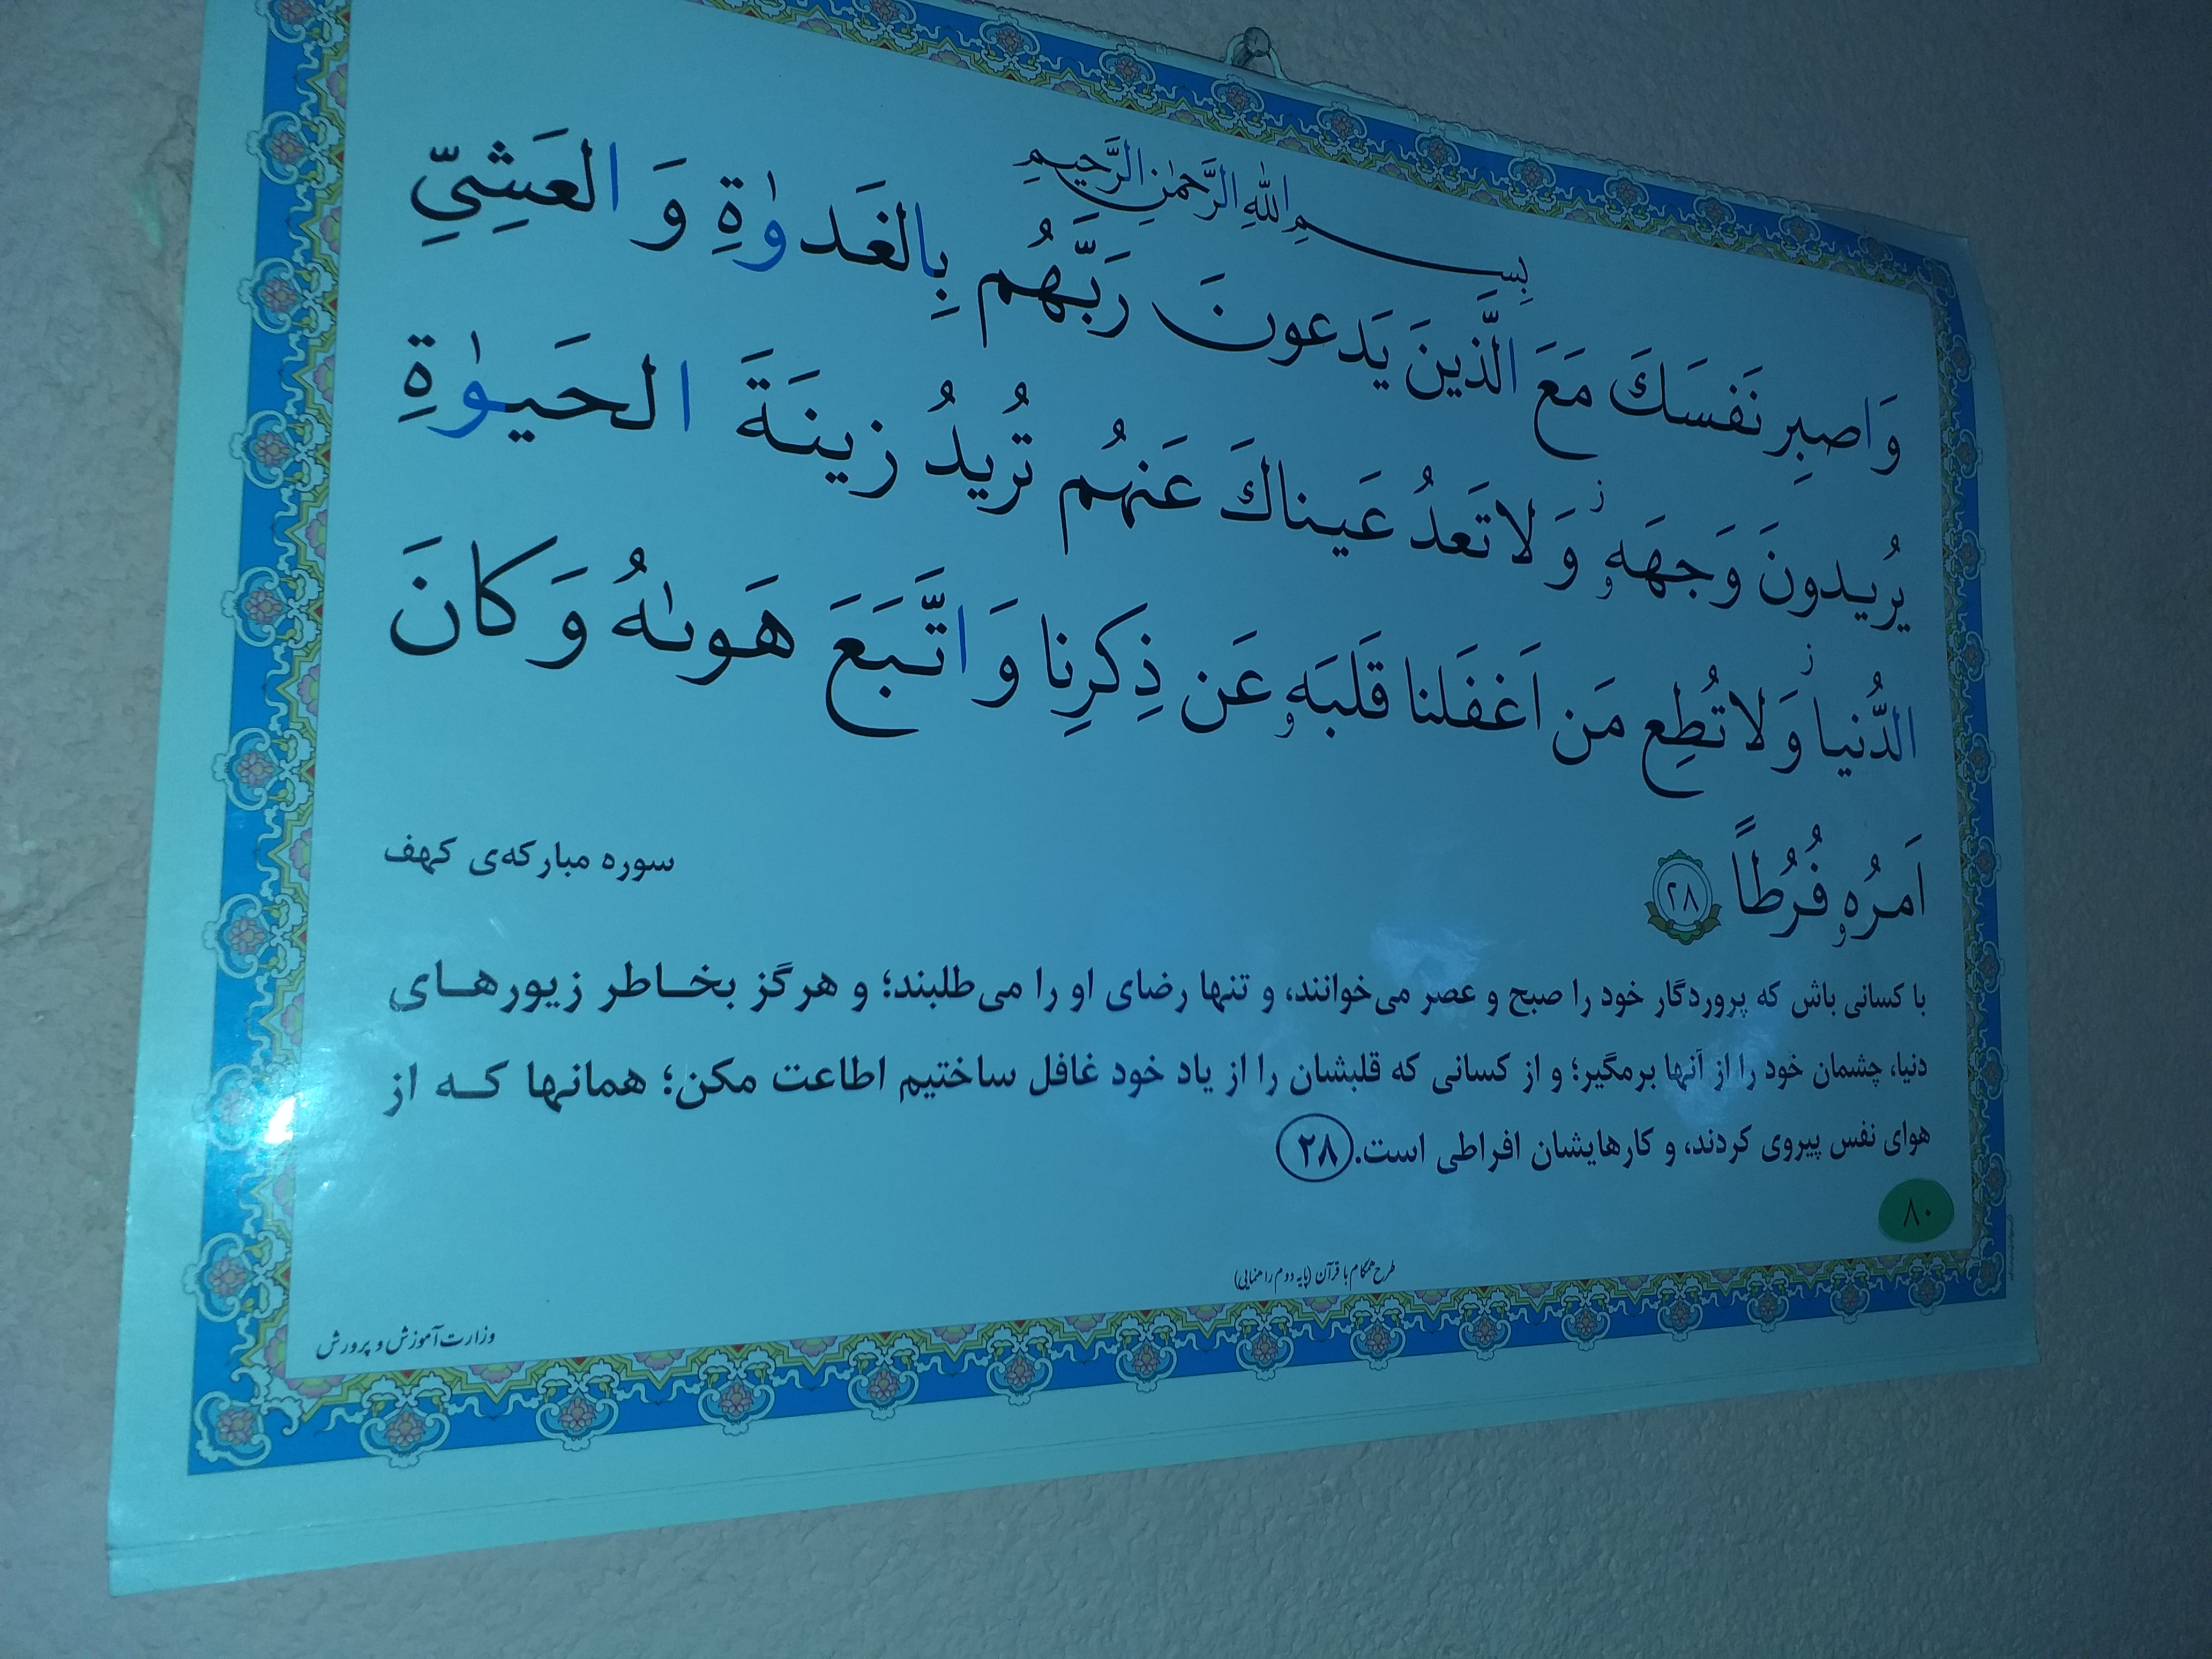 بِسمِ اللهِ الرَّحمٰنِ الرَّحیمِ
وَ اصبِر نَفسَكَ مَعَ الَّذینَ یَدعونَ رَبَّهُم بِالغَدوٰةِ وَ العَشِیِّ
یُریدونَ وَجهَهٗ ز وَ لا تَعدُ عَیناكَ عَنهُم تُریدُ زینَةَ الحَیوٰةِ
الدُّنیا ز وَ لا تُطِع مَن اَغفَلنا قَلبَهٗ عَن ذِكرِنا وَ اتَّبَعَ هَوىٰهُ وَ كانَ
اَمرُهٗ فُرُطًا ٢٨
سوره مبارکه‌ی کهف
با کسانی باش که پروردگار خود را صبح و عصر می‌خوانند، و تنها رضای او را می‌طلبند؛ و هرگز بخاطر زیورهای
دنیا، چشمان خود را از آنها برمگیر؛ و از کسانی که قلبشان را از یاد خود غافل ساختیم اطاعت مکن؛ همانها که از
هوای نفس پیروی کردند، و کارهایشان افراطی است. ۲۸
۸۰
طرح همگام با قرآن (پایه دوم راهنمایی)
وزارت آموزش و پرورش